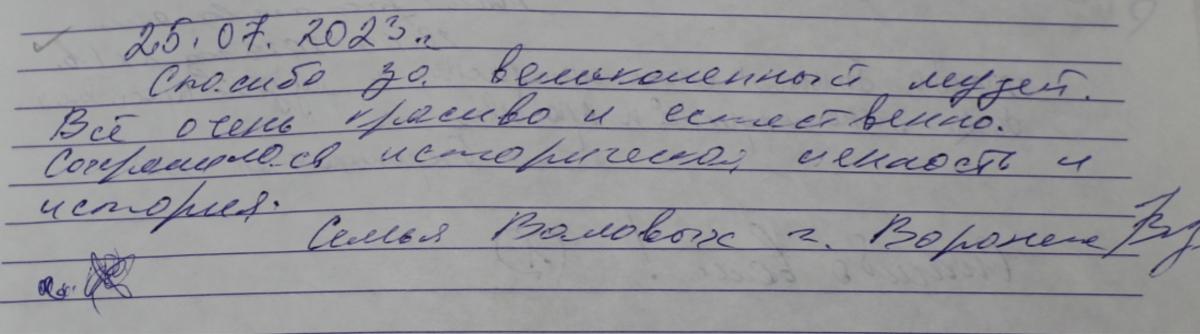 25.07.2023 г.
Спасибо за великолепный музей.
Всё очень красиво и естественно.
Сохранилась историческая ценность и
история.
Семья Валовых г. Воронеж